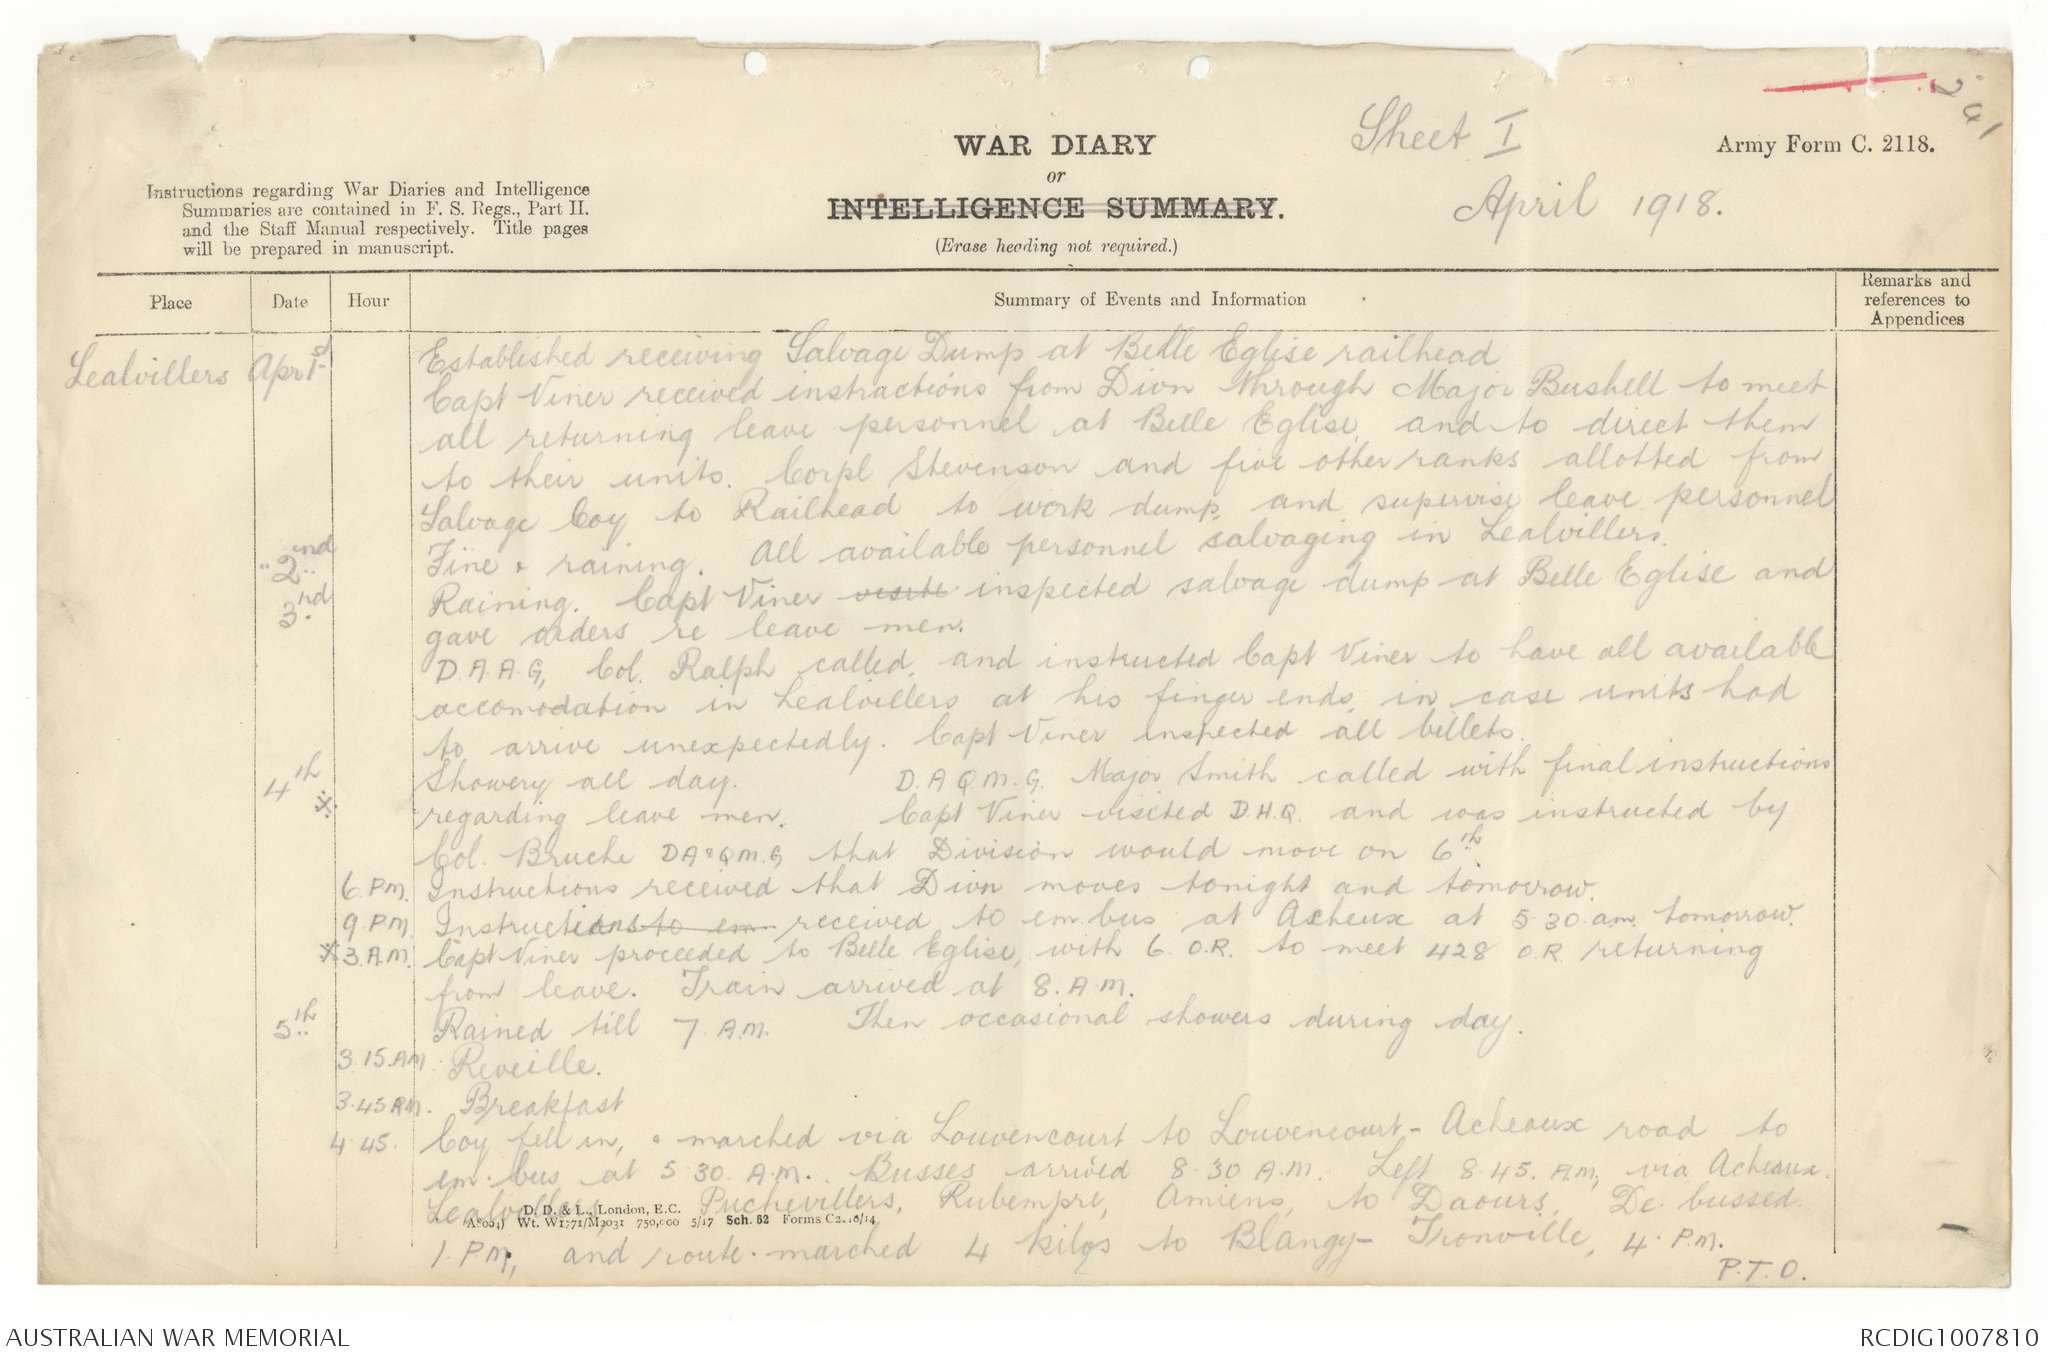 Sheet I
241
WAR DIARY
or
INTELLIGENCE SUMMARY.
(Erase heading not required.)
Army Form C. 2118.
April 1918.
Instructions regarding War Diaries and Intelligence
Summaries are contained in F. S. Regs., Part II.
and the Staff Manual respectively. Title pages
will be prepared in manuscript.
Place Date Hour Summary of Events and Information Remarks and references to Appendices
Lealvillers Apr 1st Established receiving Salvage Dump at Belle Eglise railhead
Capt Viner received instractions from Divn through Major Bushell to meet
all returning leave personnel at Belle Eglise, and to direct them
to their units. Corpl Stevenson and five other ranks allotted from
Salvage Coy to Railhead to work dump, and supervise leave personnel
"2nd Fine & raining. All available personnel salvaging in Lealvillers.
3rd Raining. Capt Viner visite inspected salvage dump at Belle Eglise and
gave orders re leave men.
D.A.A.G, Col. Ralph called, and instructed Capt Viner to have all available
accomodation in Lealvillers at his finger ends, in case units had
to arrive unexpectedly. Capt Viner inspected all billets.
4th Showery all day. D.A.Q.M.G. Major Smith called with final instructions
regarding leave men. Capt Viner visited D.H.Q. and was instructed by
Col. Bruche DA&QM.G that Division would move on 6th.
6.P.M. Instructions received that Divn moves tonight and tomorrow.
9.P.M. Instructions to em received to em.bus at Acheux at 5.30.am. tomorrow.
※3.A.M. Capt Viner proceeded to Belle Eglise, with 6. O.R. to meet 428 O.R. returning
from leave. Train arrived at 8.A.M.
5th Rained till 7.A.M. Then occasional showers during day.
3.15.AM. Reveille.
3.45AM. Breakfast
4.45. Coy fell in, & marched via Louvencourt to Louvencourt- Acheaux road to
em.bus at 5.30.A.M.. Busses arrived 8.30 A.M. Left 8.45.A.M, via Acheaux.
Puchevillers, Rubempre, Amiens, to Daours, De.bussed
D. D. & L., London, E.C.
Wt. W1771/M2031 750,000 5/17 Sch. 52 Forms C2118/14
1.P.M, and route.marched 4 kilos to Blangy- Tronville, 4.P.M.
P.T.O.
AUSTRALIAN WAR MEMORIAL
RCDIG1007810